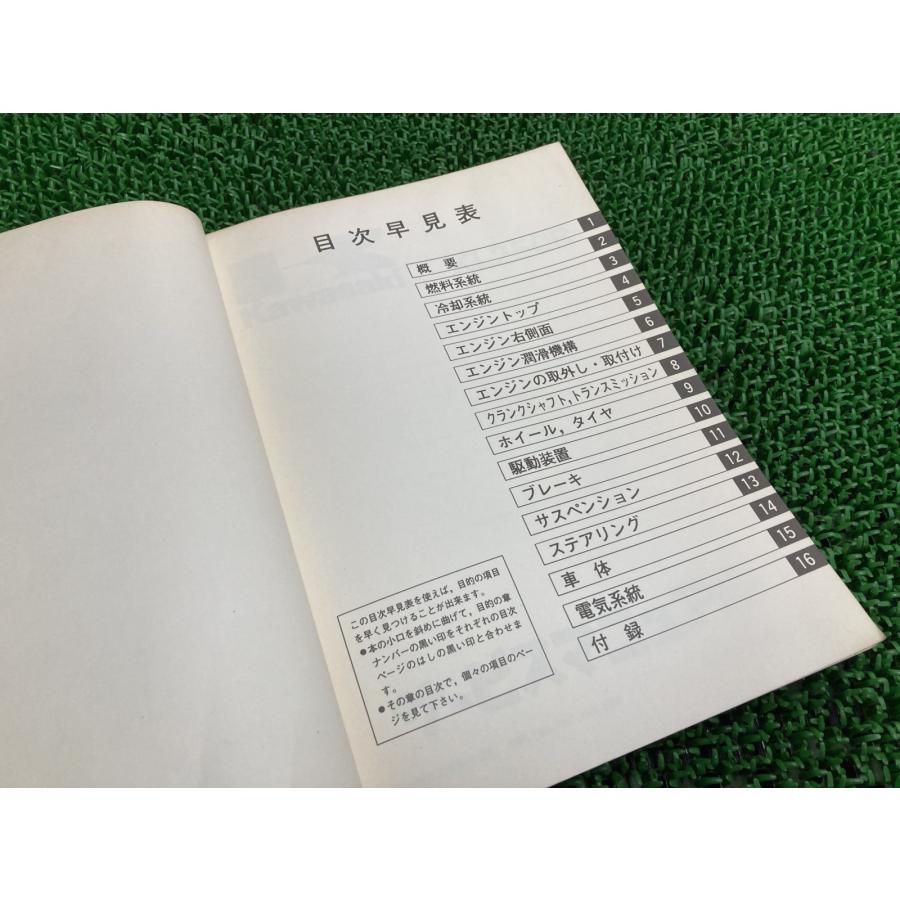 目次早見表
概要 1
燃料系統 2
冷却系統 3
エンジントップ 4
エンジン右側面 5
エンジン潤滑機構 6
エンジンの取外し・取付け 7
クランクシャフト,トランスミッション 8
ホイール,タイヤ 9
駆動装置 10
ブレーキ 11
サスペンション 12
ステアリング 13
車体 14
電気系統 15
付録 16
この目次早見表を使えば,目的の項目
を早く見つけることが出来ます。
●本の小口を斜めに曲げて,目的の章
ナンバーの黒い印をそれぞれの目次
ページのはしの黒い印と合わせま
す。
●その章の目次で,個々の項目のペー
ジを見て下さい。